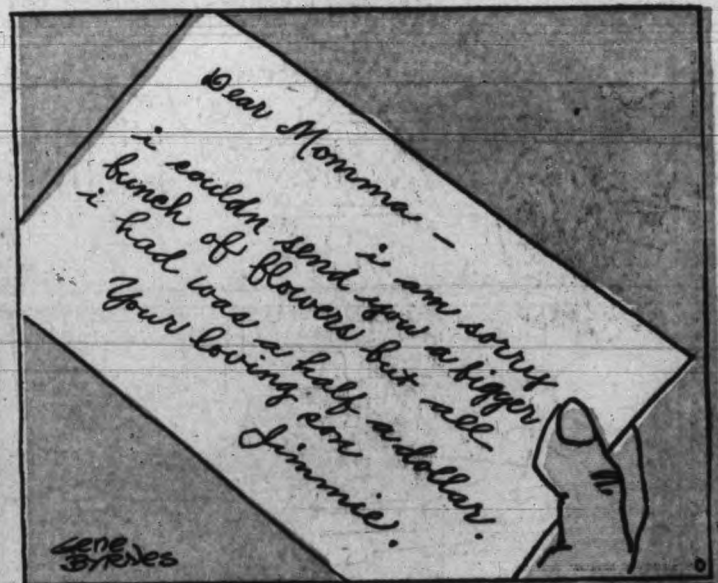 Dear Momma —
i am sorry
i couldn send you a bigger
bunch of flowers but all
i had was a half a dollar.
Your loving son
Jimmie.
Gene
Byrnes